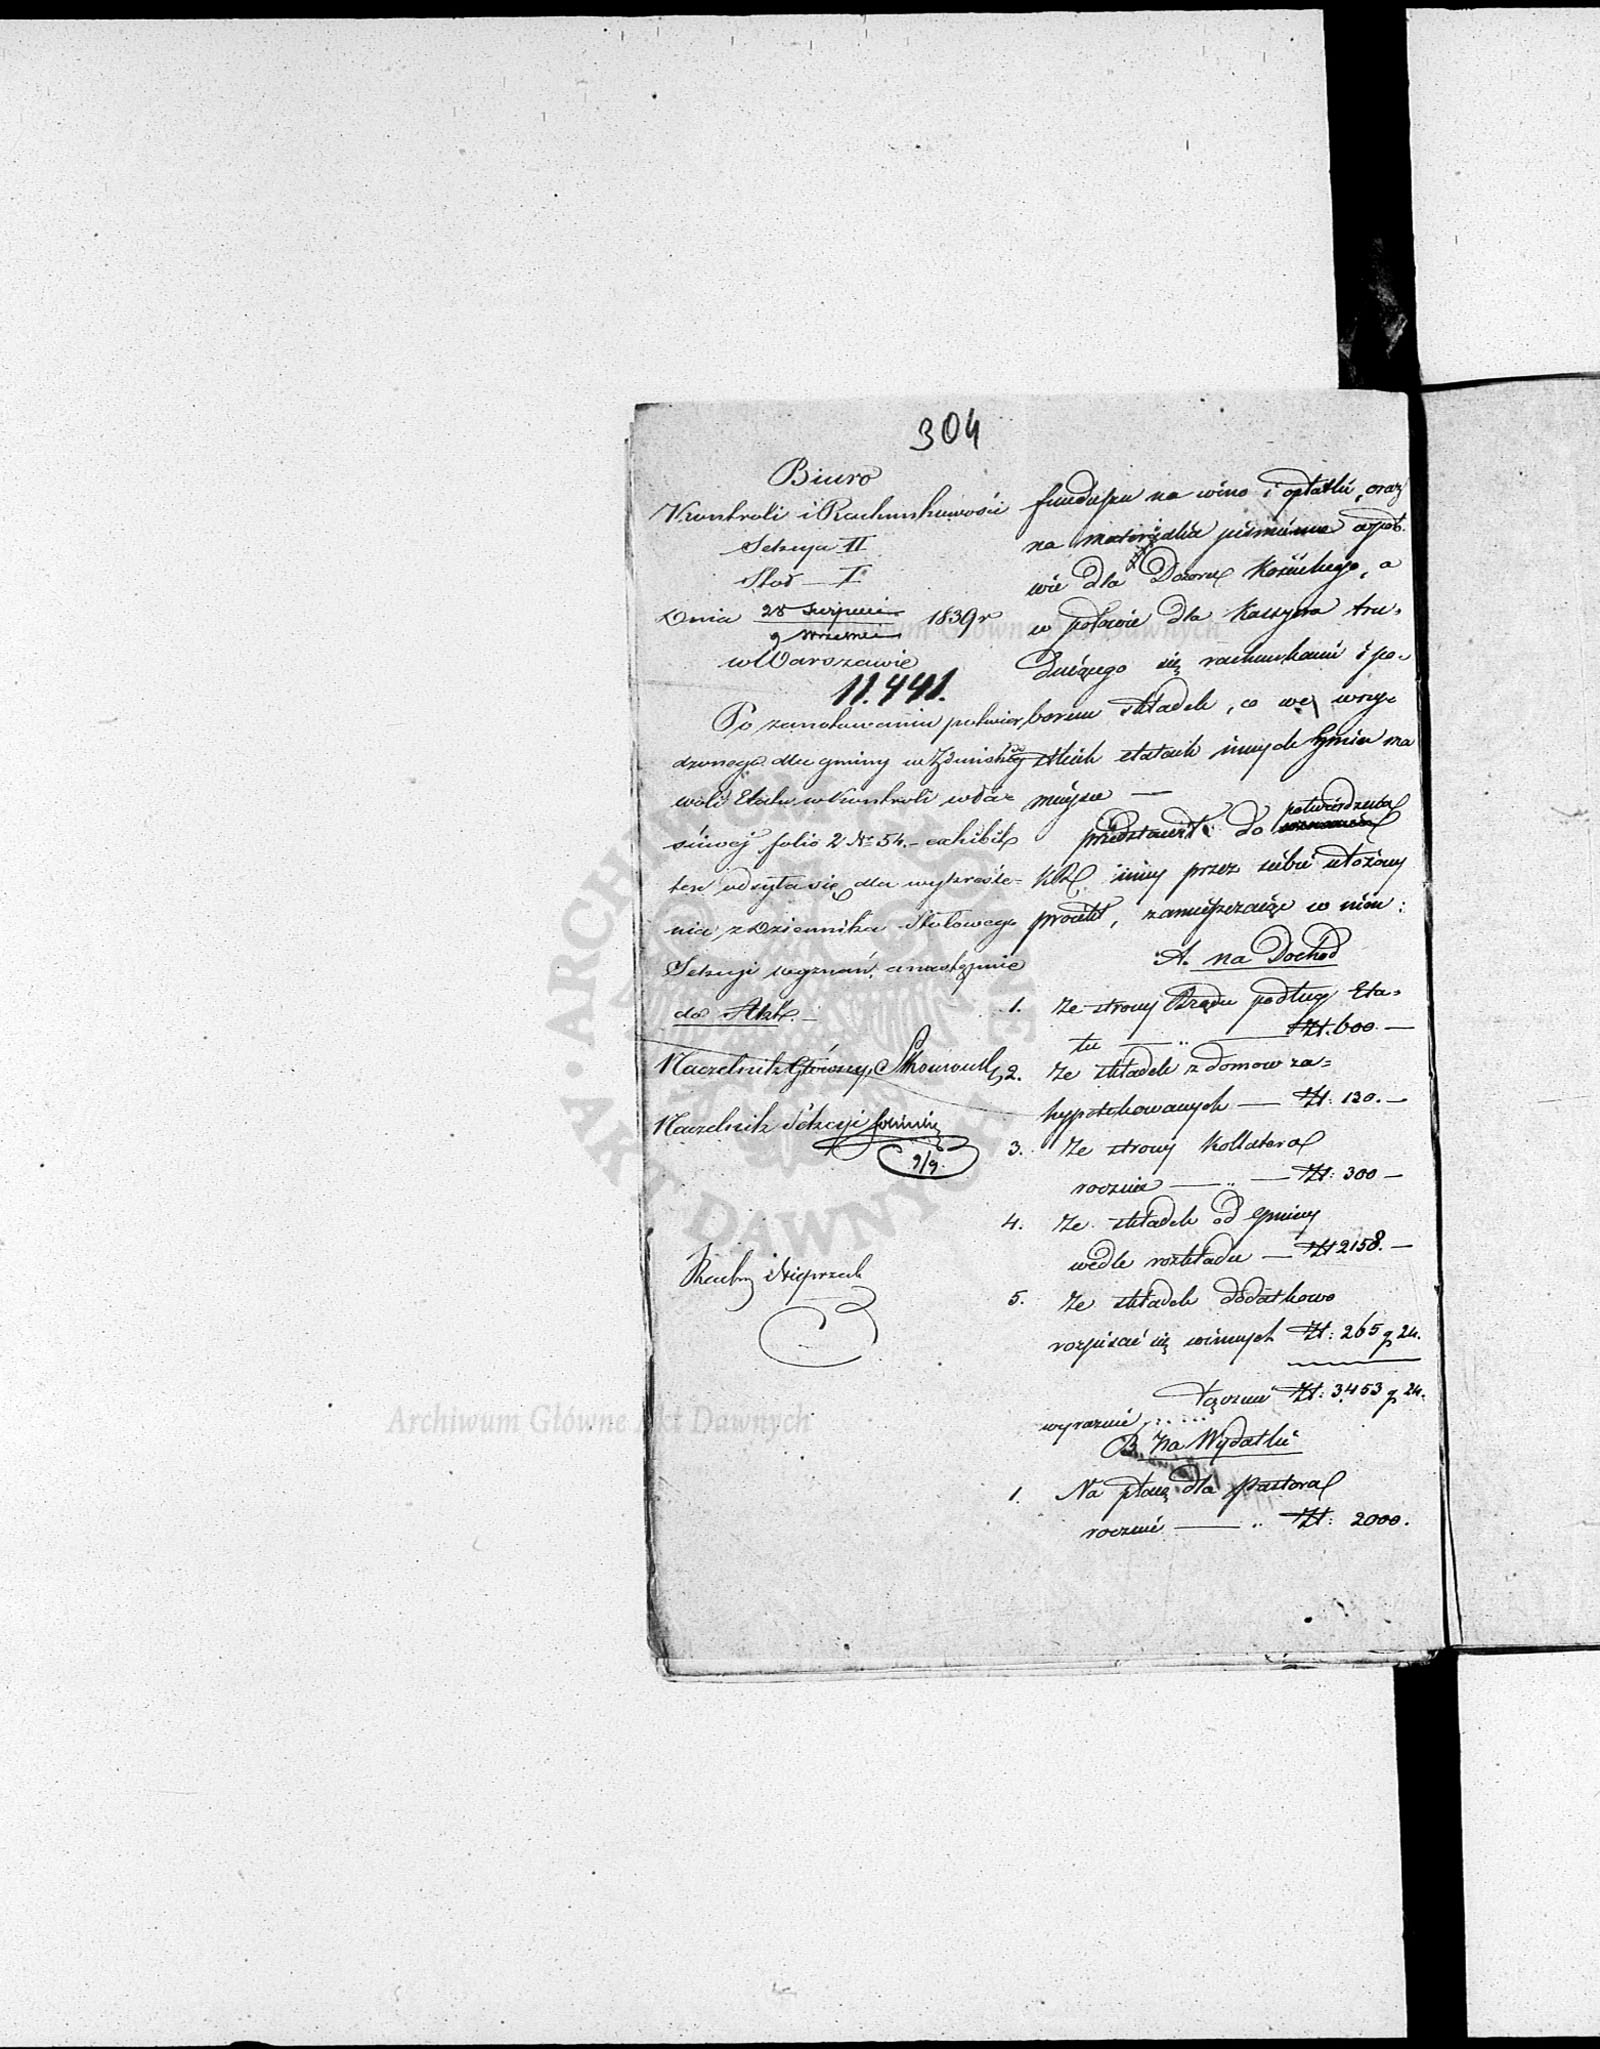 304
Biuro
Kontroli i Rachunkowości
Sekcya II
Stół I
Dnia 28 Sierpnia 1839 r
9 Września
w Warszawie
11.441.
Po zanotowaniu potwier
dzonego dla gminy w Zduńskiéj
woli Etatu w Kontroli wła=
ściwéj folio 2 No 54. exhibit
ten odsyła się dla wykreśle=
nia z Dziennika Stołowego
Sekcyi wyznań, a następnie
do Akt.
Naczelnik Główny
Naczelnik Sekcyi
9/9.
funduszu na wino i opłatki, oraz
na materyalia piśmienne w poło
wie dla Dozoru Kościelnego, a
w połowie dla Kassyera tru=
dniącego się rachunkami i po=
borem składek, co we wszy=
stkich etatach innych Gmin ma
miejsce —
przedstawił do potwierdzenia
KRz. inny przez siebie ułożony
proiekt, zamieszczaiąc w nim:
A. na Dochod
1. Ze strony Rządu podług Eta=
tu — „ — Zł. 600. —
2. Ze składek z domow za=
hypotekowanych — Zł: 130. —
3. Ze strony Kollatora
rocznie — „ — Zł: 300 —
4. Ze składek od gminy
wedle rozkładu — Zł 2158. —
5. Ze składek dodatkowo
rozpisać się winnych Zł: 265 g 24.
Łącznie Zł: 3453 g 24.
wyraznie .....
B. Na Wydatki
1. Na płacę dla Pastora
rocznie — „ Zł: 2000.
Archiwum Główne Akt Dawnych
ARCHIWUM GŁÓWNE AKT DAWNYCH